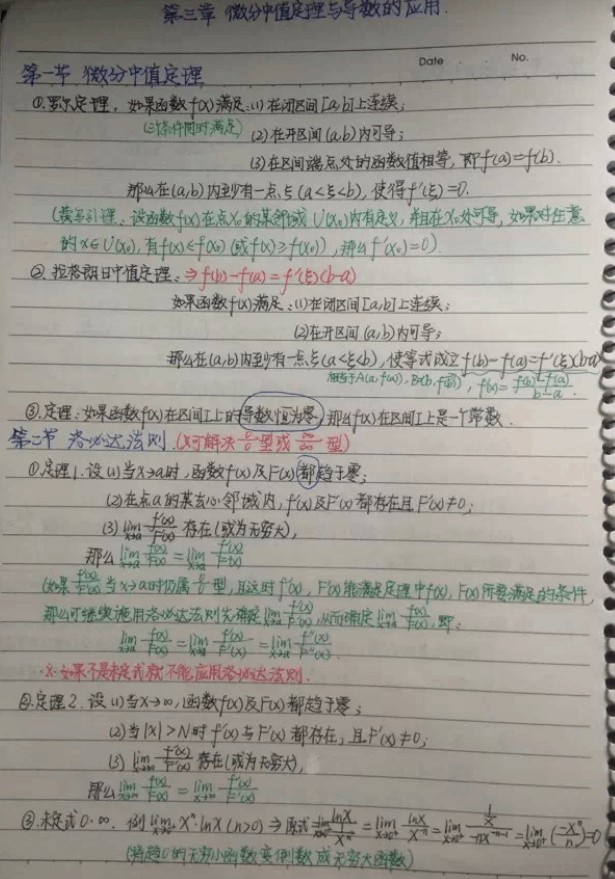 第三章 微分中值定理与导数的应用.
Date No.
第一节 微分中值定理
①.罗尔定理. 如果函数f(x)满足:(1)在闭区间[a,b]上连续;
(三条件同时满足) (2)在开区间(a,b)内可导;
(3)在区间端点处的函数值相等, 即f(a)=f(b).
那么在(a,b)内至少有一点ξ(a<ξ<b), 使得f'(ξ)=0.
(费马引理: 设函数f(x)在点x₀的某邻域U(x₀)内有定义, 并且在x₀处可导, 如果对任意
的x∈U(x₀), 有f(x)≤f(x₀) (或f(x)≥f(x₀)), 那么f'(x₀)=0).
②. 拉格朗日中值定理: ⇒ f(b)-f(a)=f'(ξ)(b-a)
如果函数f(x)满足:(1)在闭区间[a,b]上连续;
(2)在开区间(a,b)内可导;
那么在(a,b)内至少有一点ξ(a<ξ<b), 使等式成立f(b)-f(a)=f'(ξ)(b-a)
相当于A(a,f(a)), B(b,f(b)), f'(x)=\frac{f(b)-f(a)}{b-a}.
③.定理: 如果函数f(x)在区间I上的导数恒为零, 那么f(x)在区间I上是一个常数.
第二节 洛必达法则.(只可解决\frac{0}{0}型或\frac{∞}{∞}型)
①定理1. 设(1)当x→a时, 函数f(x)及F(x)都趋于零;
(2)在点a的某去心邻域内, f'(x)及F'(x)都存在且F'(x)≠0;
(3) \lim_{x→a}\frac{f'(x)}{F'(x)} 存在(或为无穷大),
那么\lim_{x→a}\frac{f(x)}{F(x)}=\lim_{x→a}\frac{f'(x)}{F'(x)}
(如果\frac{f'(x)}{F'(x)}当x→a时仍属\frac{0}{0}型, 且这时f'(x), F'(x)能满足定理中f(x), F(x)所要满足的条件,
那么可继续施用洛必达法则先确定\lim_{x→a}\frac{f'(x)}{F'(x)}, 从而确定\lim_{x→a}\frac{f(x)}{F(x)}, 即:
\lim_{x→a}\frac{f(x)}{F(x)}=\lim_{x→a}\frac{f'(x)}{F'(x)}=\lim_{x→a}\frac{f''(x)}{F''(x)}.
※.如果不是未定式就不能应用洛必达法则.
②.定理2. 设(1)当x→∞, 函数f(x)及F(x)都趋于零;
(2)当|x|>N时f'(x)与F'(x)都存在, 且F'(x)≠0;
(3) \lim_{x→∞}\frac{f'(x)}{F'(x)}存在(或为无穷大),
那么\lim_{x→∞}\frac{f(x)}{F(x)}=\lim_{x→∞}\frac{f'(x)}{F'(x)}
③.未定式0·∞. 例\lim_{x→0⁺}xⁿ·lnx(n>0) ⇒ 原式=\lim\frac{lnx}{\frac{1}{xⁿ}}=\lim_{x→0⁺}\frac{lnx}{x^{-n}}=\lim_{x→0⁺}\frac{\frac{1}{x}}{-nx^{-n-1}}=\lim_{x→0⁺}(\frac{-xⁿ}{n})=0
(将趋0的无穷小函数变倒数成无穷大函数)